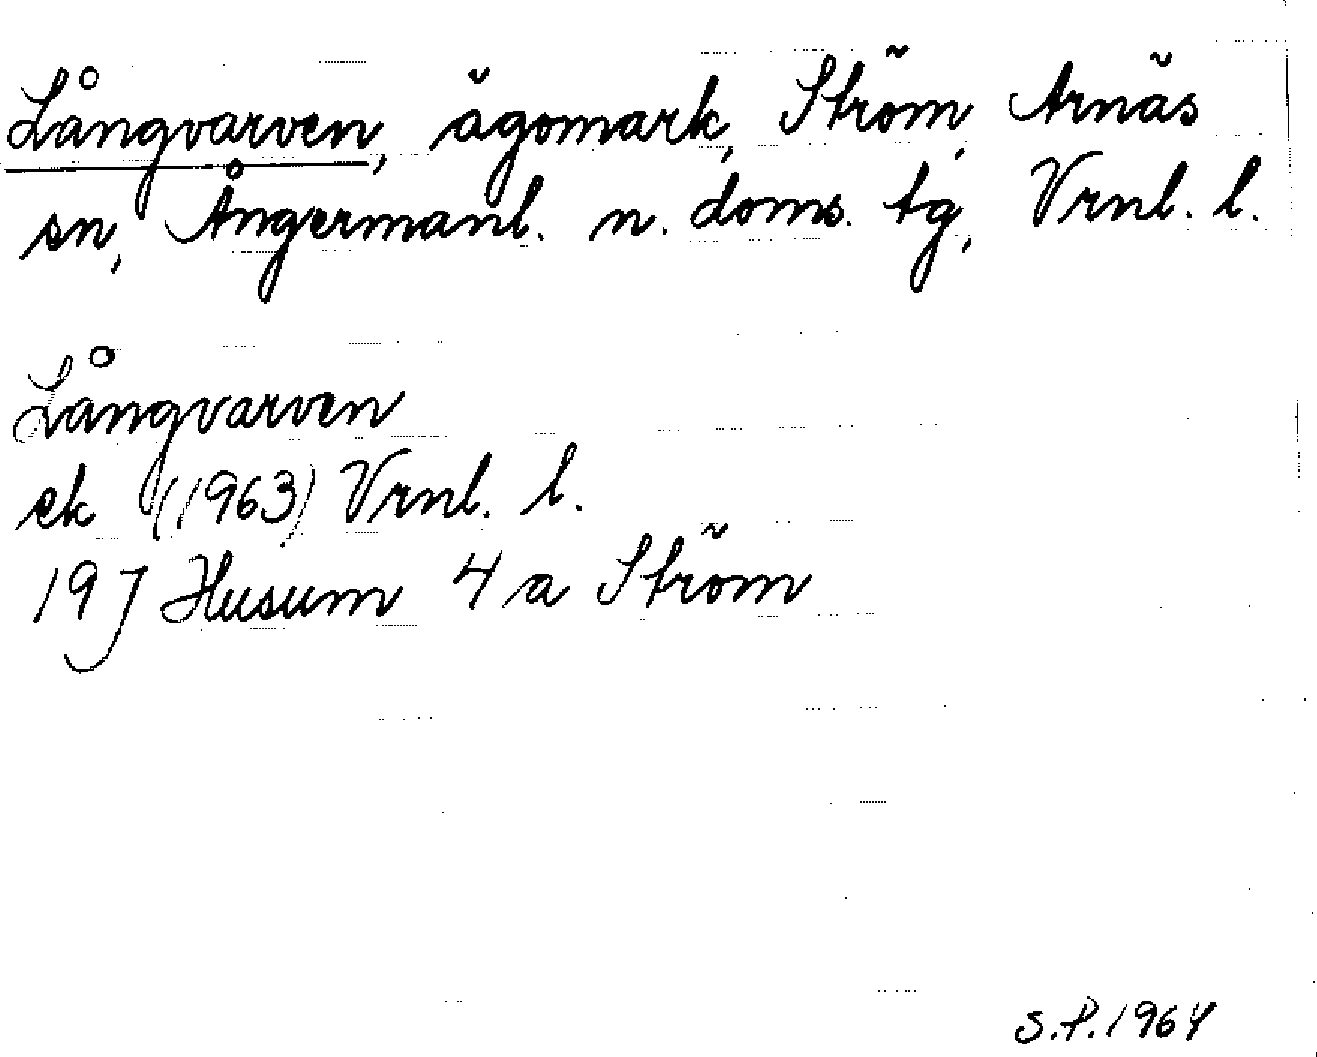 Långvarven, ägomark, Ström, Arnäs
sn, Ångermanl. n. doms. tg, Vrnl. l.
Långvarven
ek (1963) Vrnl. l.
19 J Husum 4 a Ström
S.P. 1964